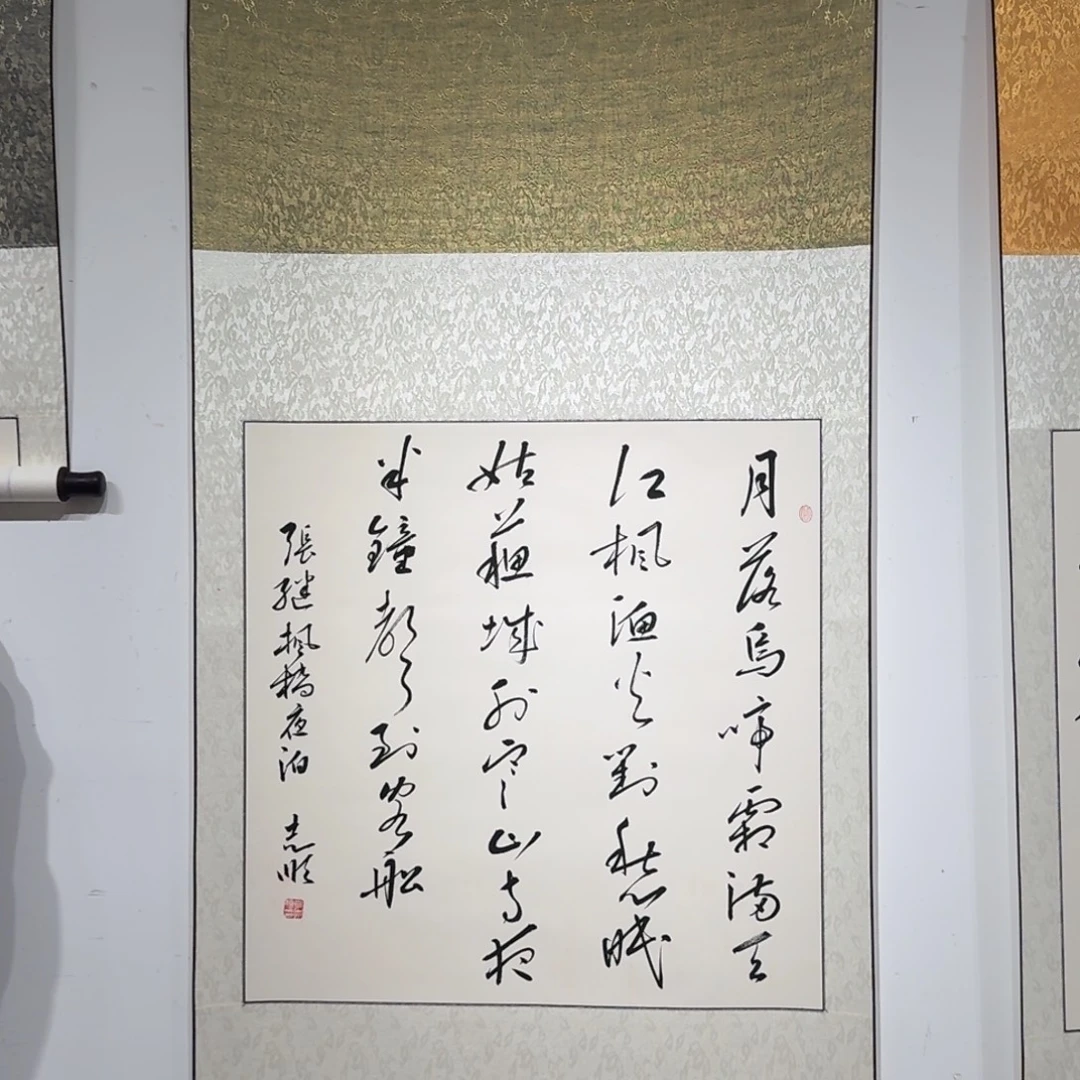 月落烏啼霜滿天
江楓漁火對愁眠
姑蘇城外寒山寺夜
半鐘聲到客船
張繼楓橋夜泊 志順